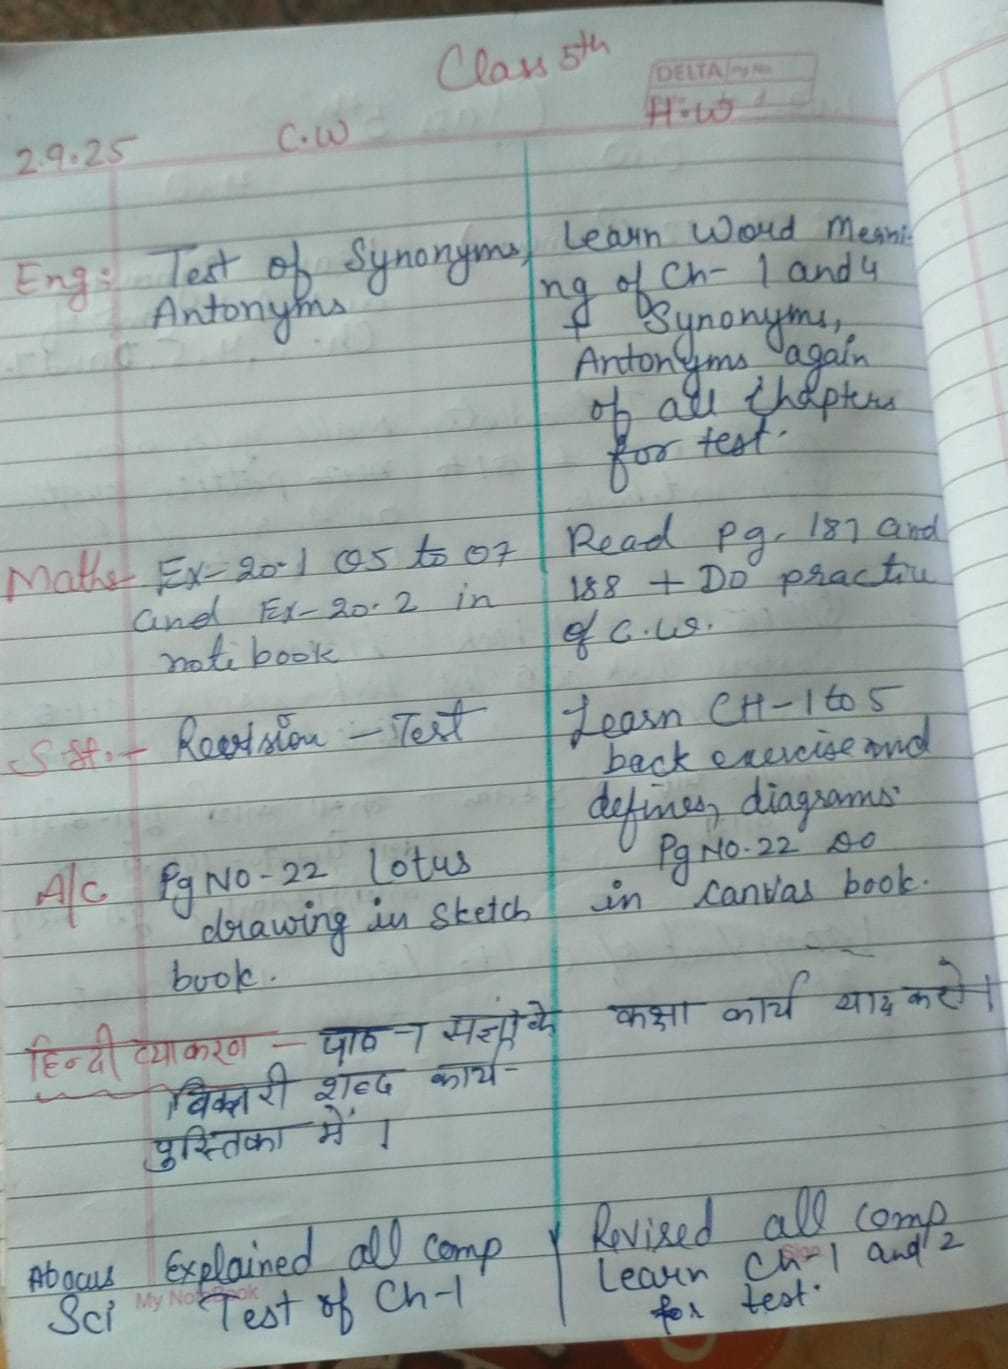 Class 5th
DELTA Pg No.
2.9.25 C.W H.W
Eng: Test of Synonyms, Learn Word Meani-
Antonyms ng of Ch- 1 and 4
+ Synonyms,
Antonyms again
of all Chapters
for test.
Maths- Ex-20.1 Q5 to Q7 Read pg. 187 and
and Ex-20.2 in 188 + DO practice
notebook of C.W.
S.St.- Revision - Test Learn CH-1 to 5
back exercise and
defines, diagrams.
A/C Pg NO-22 Lotus Pg NO.22 DO
drawing in Sketch in Canvas book.
book.
हिन्दी व्याकरण - पाठ-7 संज्ञा के कक्षा कार्य याद करो।
विकारी शब्द कार्य-
पुस्तिका में।
Abacus Explained all comp Revised all comp
Sci Test of Ch-1 Learn Ch-1 and 2
My NoteBook for test.